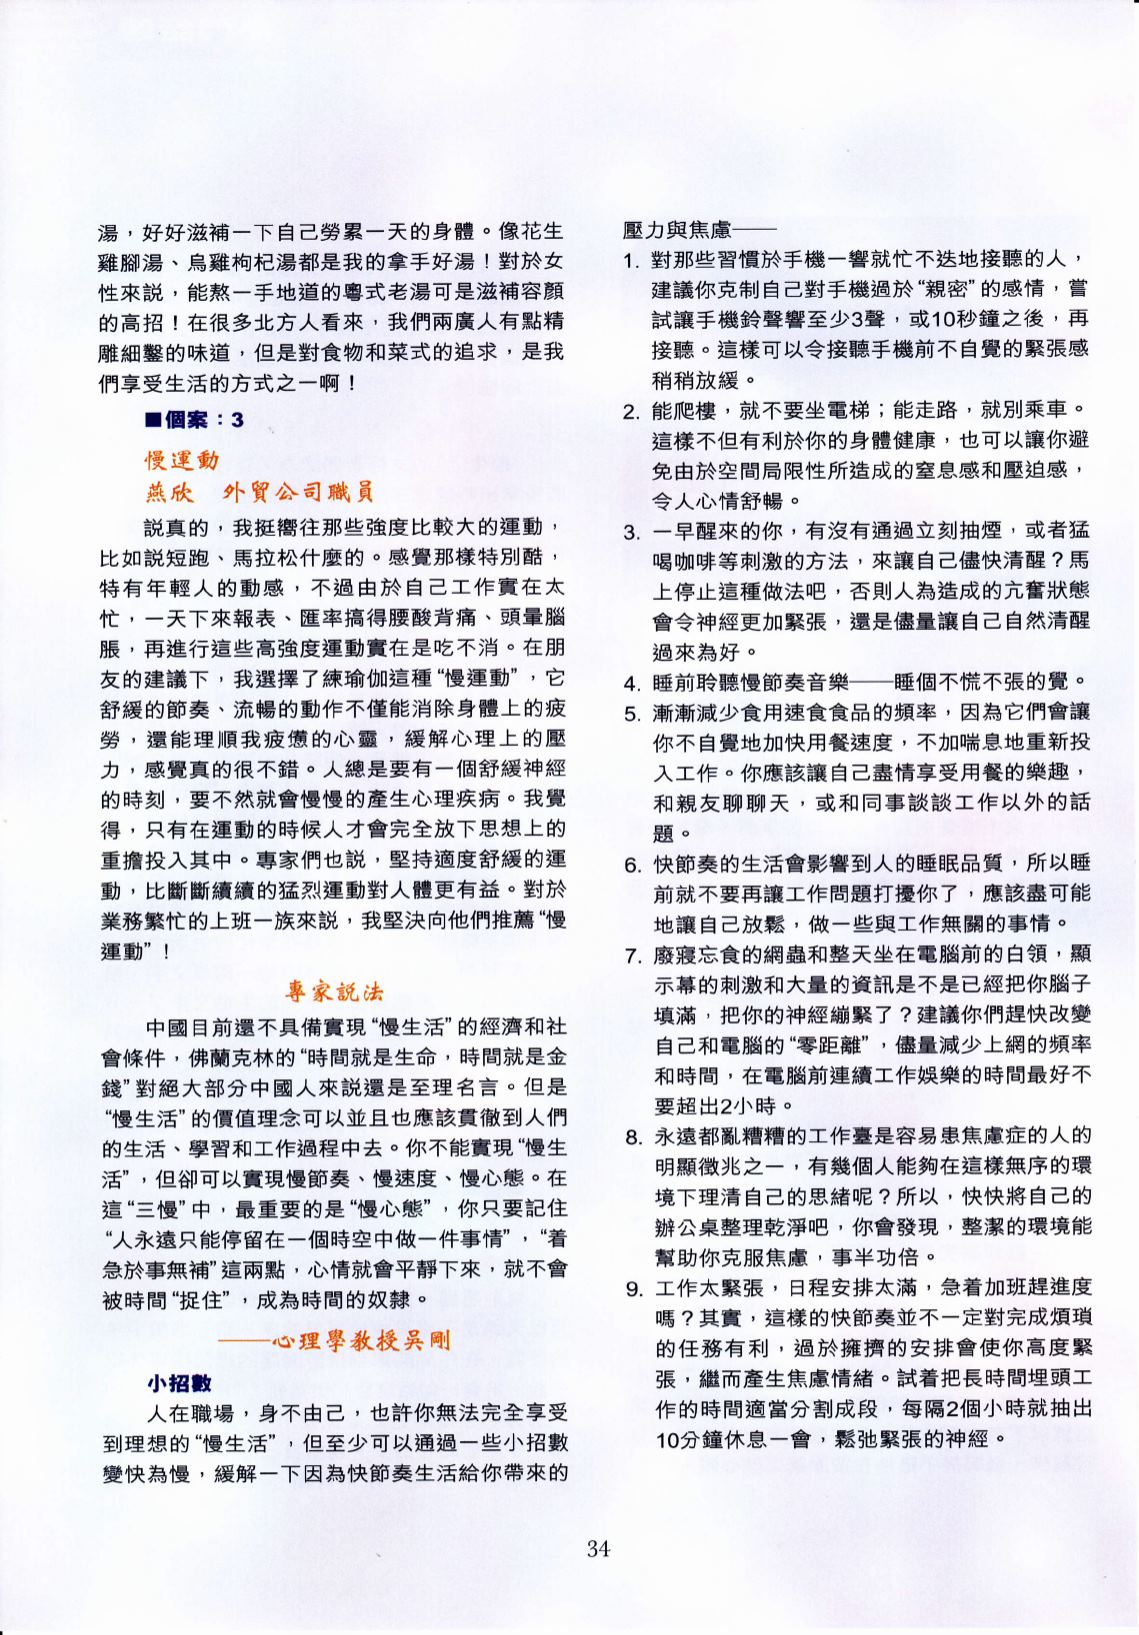 湯，好好滋補一下自己勞累一天的身體。像花生
雞腳湯、烏雞枸杞湯都是我的拿手好湯！對於女
性來説，能熬一手地道的粵式老湯可是滋補容顏
的高招！在很多北方人看來，我們兩廣人有點精
雕細鑿的味道，但是對食物和菜式的追求，是我
們享受生活的方式之一啊！
■個案：3
慢運動
燕欣　外貿公司職員
説真的，我挺嚮往那些強度比較大的運動，
比如説短跑、馬拉松什麼的。感覺那樣特別酷，
特有年輕人的動感，不過由於自己工作實在太
忙，一天下來報表、匯率搞得腰酸背痛、頭暈腦
脹，再進行這些高強度運動實在是吃不消。在朋
友的建議下，我選擇了練瑜伽這種“慢運動”，它
舒緩的節奏、流暢的動作不僅能消除身體上的疲
勞，還能理順我疲憊的心靈，緩解心理上的壓
力，感覺真的很不錯。人總是要有一個舒緩神經
的時刻，要不然就會慢慢的產生心理疾病。我覺
得，只有在運動的時候人才會完全放下思想上的
重擔投入其中。專家們也説，堅持適度舒緩的運
動，比斷斷續續的猛烈運動對人體更有益。對於
業務繁忙的上班一族來説，我堅決向他們推薦“慢
運動”！
專家説法
中國目前還不具備實現“慢生活”的經濟和社
會條件，佛蘭克林的“時間就是生命，時間就是金
錢”對絕大部分中國人來説還是至理名言。但是
“慢生活”的價值理念可以並且也應該貫徹到人們
的生活、學習和工作過程中去。你不能實現“慢生
活”，但卻可以實現慢節奏、慢速度、慢心態。在
這“三慢”中，最重要的是“慢心態”，你只要記住
“人永遠只能停留在一個時空中做一件事情”，“着
急於事無補”這兩點，心情就會平靜下來，就不會
被時間“捉住”，成為時間的奴隸。
——心理學教授吳剛
小招數
人在職場，身不由己，也許你無法完全享受
到理想的“慢生活”，但至少可以通過一些小招數
變快為慢，緩解一下因為快節奏生活給你帶來的
壓力與焦慮——
1. 對那些習慣於手機一響就忙不迭地接聽的人，
建議你克制自己對手機過於“親密”的感情，嘗
試讓手機鈴聲響至少3聲，或10秒鐘之後，再
接聽。這樣可以令接聽手機前不自覺的緊張感
稍稍放緩。
2. 能爬樓，就不要坐電梯；能走路，就別乘車。
這樣不但有利於你的身體健康，也可以讓你避
免由於空間局限性所造成的窒息感和壓迫感，
令人心情舒暢。
3. 一早醒來的你，有沒有通過立刻抽煙，或者猛
喝咖啡等刺激的方法，來讓自己儘快清醒？馬
上停止這種做法吧，否則人為造成的亢奮狀態
會令神經更加緊張，還是儘量讓自己自然清醒
過來為好。
4. 睡前聆聽慢節奏音樂——睡個不慌不張的覺。
5. 漸漸減少食用速食食品的頻率，因為它們會讓
你不自覺地加快用餐速度，不加喘息地重新投
入工作。你應該讓自己盡情享受用餐的樂趣，
和親友聊聊天，或和同事談談工作以外的話
題。
6. 快節奏的生活會影響到人的睡眠品質，所以睡
前就不要再讓工作問題打擾你了，應該盡可能
地讓自己放鬆，做一些與工作無關的事情。
7. 廢寢忘食的網蟲和整天坐在電腦前的白領，顯
示幕的刺激和大量的資訊是不是已經把你腦子
填滿，把你的神經繃緊了？建議你們趕快改變
自己和電腦的“零距離”，儘量減少上網的頻率
和時間，在電腦前連續工作娛樂的時間最好不
要超出2小時。
8. 永遠都亂糟糟的工作臺是容易患焦慮症的人的
明顯徵兆之一，有幾個人能夠在這樣無序的環
境下理清自己的思緒呢？所以，快快將自己的
辦公桌整理乾淨吧，你會發現，整潔的環境能
幫助你克服焦慮，事半功倍。
9. 工作太緊張，日程安排太滿，急着加班趕進度
嗎？其實，這樣的快節奏並不一定對完成煩瑣
的任務有利，過於擁擠的安排會使你高度緊
張，繼而產生焦慮情緒。試着把長時間埋頭工
作的時間適當分割成段，每隔2個小時就抽出
10分鐘休息一會，鬆弛緊張的神經。
34